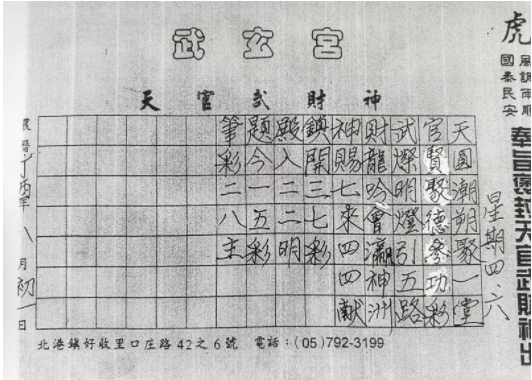 虎
風調雨順
國泰民安
奉旨褒封天官武財神出
武玄宮
天官武財神
星期四.六
天圓潮朔聚一堂
官賢聚德參功彩
武燦明燈引五路
財龍吟會瀛神洲
神賜七來四四獻
鎮開三七彩
殿入二二明
題今一五彩
筆彩二八主
農曆丁酉八月初一日
北港鎮好收里口庄路42之6號 電話:(05)792-3199